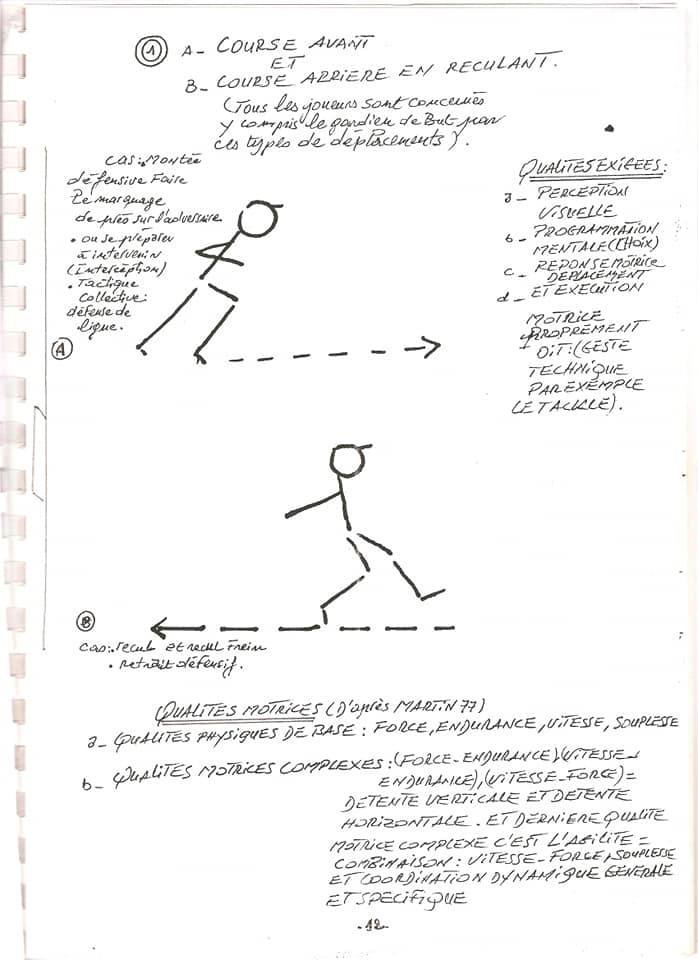 ① A- COURSE AVANT
ET
B- COURSE ARRIERE EN RECULANT.
(Tous les joueurs sont concernés
y compris le gardien de But par
ces types de déplacements).
Cas: Montée
défensive Faire
Le marquage
de près sur l'adversaire.
• ou se préparer
à intervenir
(Interception)
• Tactique
Collective:
défense de
ligne.
QUALITES EXIGEES:
a- PERCEPTION
VISUELLE
b- PROGRAMMATION
MENTALE (CHOIX)
c- REPONSE MOTRICE
DEPLACEMENT
d- ET EXECUTION
MOTRICE
PROPREMENT
DIT: (GESTE
TECHNIQUE
PAR EXEMPLE
LE TACKLE).
A
B
Cas: recul et recul frein
• Retrait défensif.
QUALITES MOTRICES (D'après MARTIN 77)
a- QUALITES PHYSIQUES DE BASE: FORCE, ENDURANCE, VITESSE, SOUPLESSE
b- QUALITES MOTRICES COMPLEXES: (FORCE-ENDURANCE), (VITESSE-
ENDURANCE), (VITESSE-FORCE) =
DETENTE VERTICALE ET DETENTE
HORIZONTALE. ET DERNIERE QUALITE
MOTRICE COMPLEXE C'EST L'AGILITE =
COMBINAISON: VITESSE-FORCE, SOUPLESSE
ET COORDINATION DYNAMIQUE GENERALE
ET SPECIFIQUE
-12-